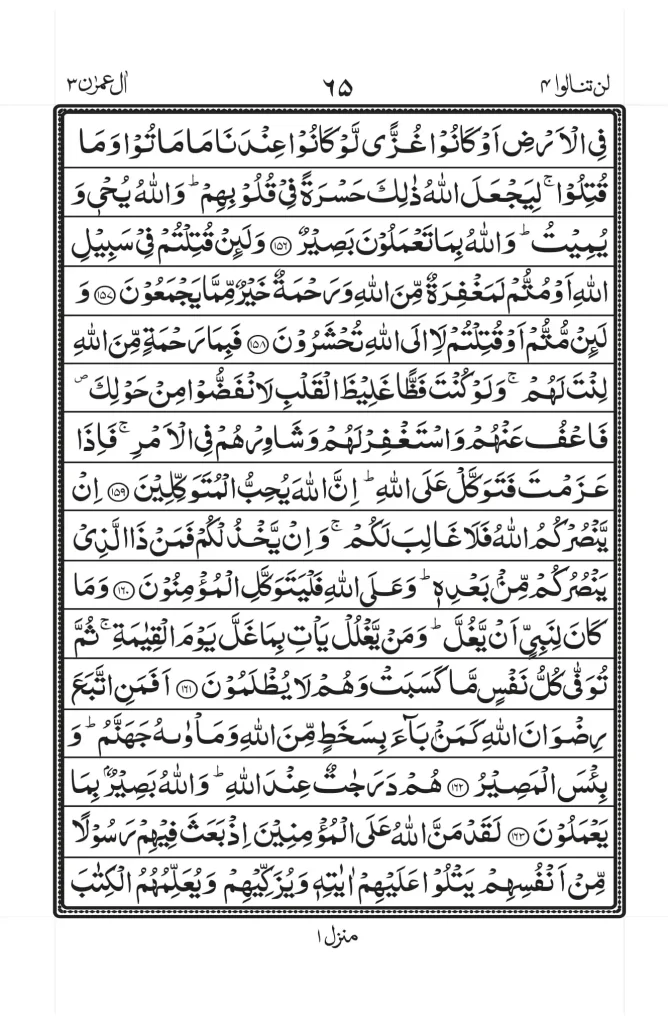 لن تنالوا ۴ ۶۵ اٰل عمرٰن ۳
فِی الۡاَرۡضِ اَوۡ کَانُوۡا غُزًّی لَّوۡ کَانُوۡا عِنۡدَنَا مَا مَاتُوۡا وَ مَا
قُتِلُوۡا ۚ لِیَجۡعَلَ اللّٰہُ ذٰلِکَ حَسۡرَۃً فِیۡ قُلُوۡبِہِمۡ ؕ وَ اللّٰہُ یُحۡیٖ وَ
یُمِیۡتُ ؕ وَ اللّٰہُ بِمَا تَعۡمَلُوۡنَ بَصِیۡرٌ ﴿۱۵۶﴾ وَ لَئِنۡ قُتِلۡتُمۡ فِیۡ سَبِیۡلِ
اللّٰہِ اَوۡ مُتُّمۡ لَمَغۡفِرَۃٌ مِّنَ اللّٰہِ وَ رَحۡمَۃٌ خَیۡرٌ مِّمَّا یَجۡمَعُوۡنَ ﴿۱۵۷﴾ وَ
لَئِنۡ مُّتُّمۡ اَوۡ قُتِلۡتُمۡ لَاِالَی اللّٰہِ تُحۡشَرُوۡنَ ﴿۱۵۸﴾ فَبِمَا رَحۡمَۃٍ مِّنَ اللّٰہِ
لِنۡتَ لَہُمۡ ۚ وَ لَوۡ کُنۡتَ فَظًّا غَلِیۡظَ الۡقَلۡبِ لَانۡفَضُّوۡا مِنۡ حَوۡلِکَ ۪
فَاعۡفُ عَنۡہُمۡ وَ اسۡتَغۡفِرۡ لَہُمۡ وَ شَاوِرۡہُمۡ فِی الۡاَمۡرِ ۚ فَاِذَا
عَزَمۡتَ فَتَوَکَّلۡ عَلَی اللّٰہِ ؕ اِنَّ اللّٰہَ یُحِبُّ الۡمُتَوَکِّلِیۡنَ ﴿۱۵۹﴾ اِنۡ
یَّنۡصُرۡکُمُ اللّٰہُ فَلَا غَالِبَ لَکُمۡ ۚ وَ اِنۡ یَّخۡذُلۡکُمۡ فَمَنۡ ذَا الَّذِیۡ
یَنۡصُرُکُمۡ مِّنۡۢ بَعۡدِہٖ ؕ وَ عَلَی اللّٰہِ فَلۡیَتَوَکَّلِ الۡمُؤۡمِنُوۡنَ ﴿۱۶۰﴾ وَ مَا
کَانَ لِنَبِیٍّ اَنۡ یَّغُلَّ ؕ وَ مَنۡ یَّغۡلُلۡ یَاۡتِ بِمَا غَلَّ یَوۡمَ الۡقِیٰمَۃِ ۚ ثُمَّ
تُوَفّٰی کُلُّ نَفۡسٍ مَّا کَسَبَتۡ وَ ہُمۡ لَا یُظۡلَمُوۡنَ ﴿۱۶۱﴾ اَفَمَنِ اتَّبَعَ
رِضۡوَانَ اللّٰہِ کَمَنۡۢ بَآءَ بِسَخَطٍ مِّنَ اللّٰہِ وَ مَاۡوٰىہُ جَہَنَّمُ ؕ وَ
بِئۡسَ الۡمَصِیۡرُ ﴿۱۶۲﴾ ہُمۡ دَرَجٰتٌ عِنۡدَ اللّٰہِ ؕ وَ اللّٰہُ بَصِیۡرٌۢ بِمَا
یَعۡمَلُوۡنَ ﴿۱۶۳﴾ لَقَدۡ مَنَّ اللّٰہُ عَلَی الۡمُؤۡمِنِیۡنَ اِذۡ بَعَثَ فِیۡہِمۡ رَسُوۡلًا
مِّنۡ اَنۡفُسِہِمۡ یَتۡلُوۡا عَلَیۡہِمۡ اٰیٰتِہٖ وَ یُزَکِّیۡہِمۡ وَ یُعَلِّمُہُمُ الۡکِتٰبَ
منزل ۱